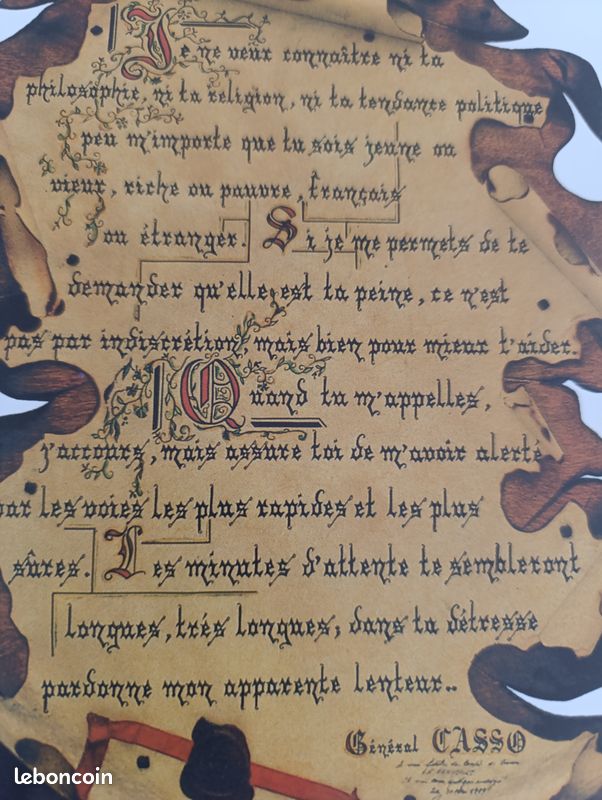 Je ne veux connaître ni ta
philosophie, ni ta religion, ni ta tendance politique
peu m'importe que tu sois jeune ou
vieux, riche ou pauvre, français
ou étranger. Si je me permets de te
demander qu'elle est ta peine, ce n'est
pas par indiscrétion, mais bien pour mieux t'aider.
Quand tu m'appelles,
j'accours, mais assure toi de m'avoir alerté
par les voies les plus rapides et les plus
sûres. Les minutes d'attente te sembleront
longues, trés longues, dans ta détresse
pardonne mon apparente lenteur..
Général CASSO
leboncoin